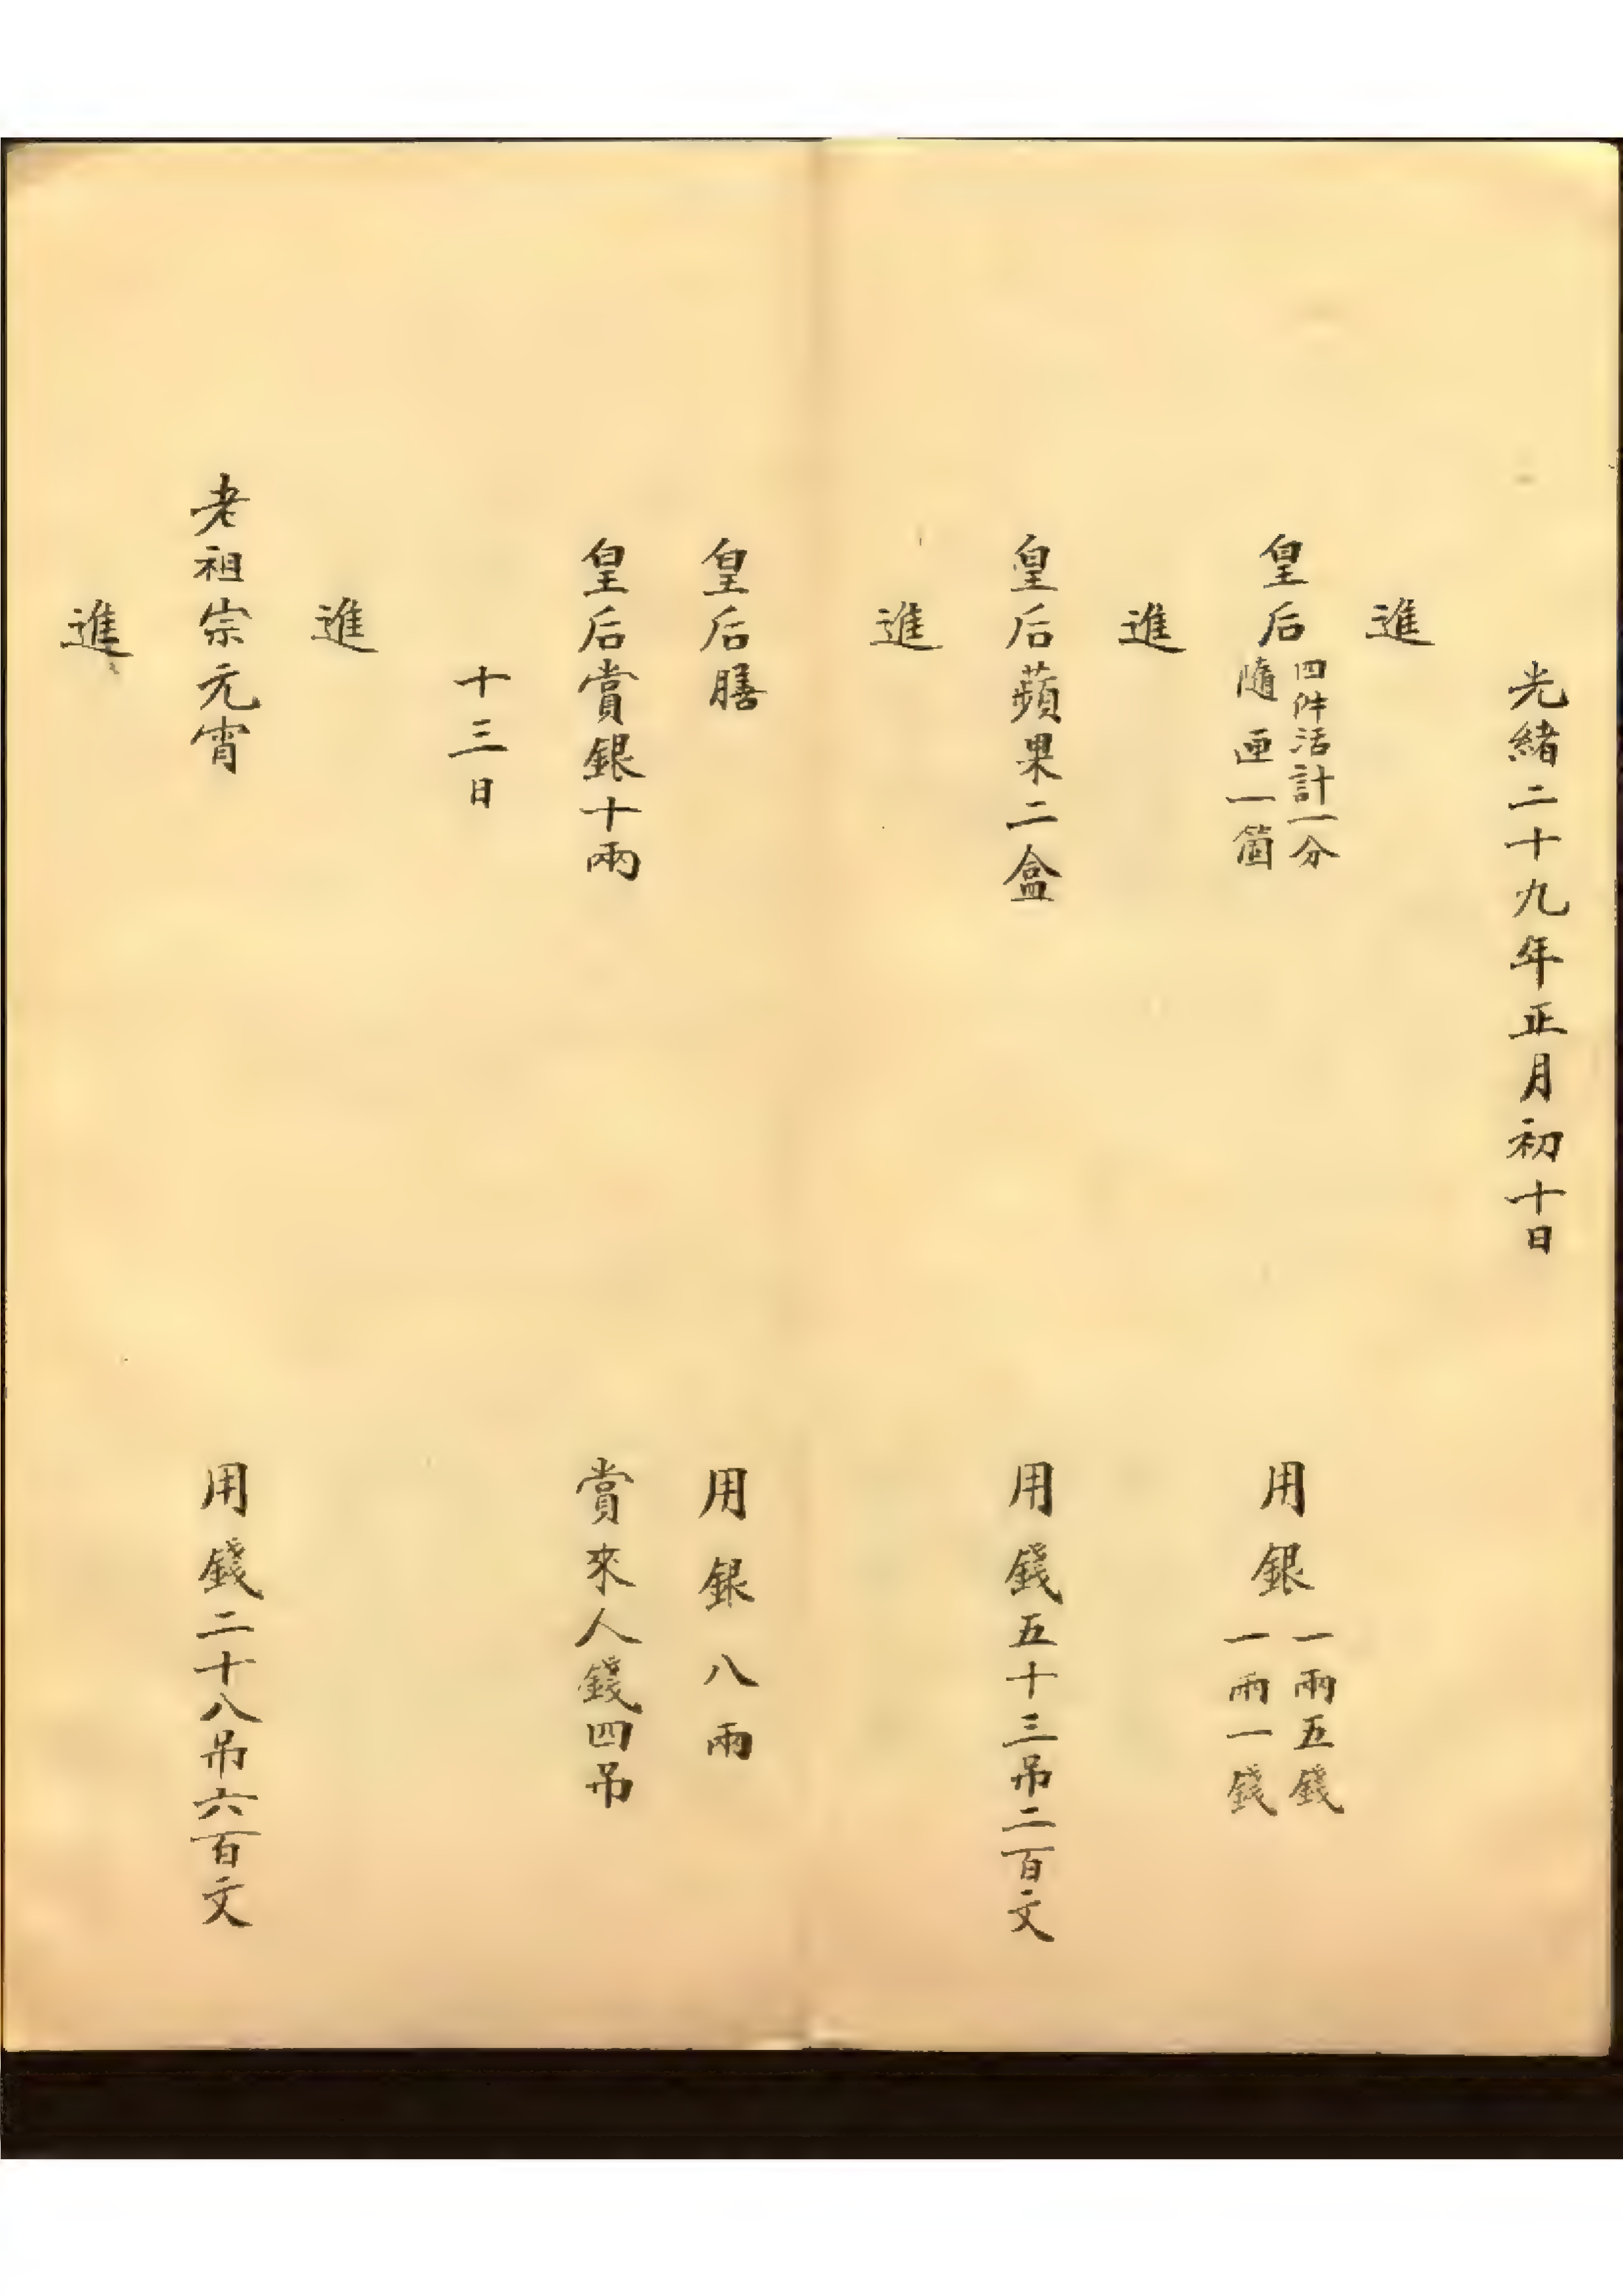 光緒二十九年正月初十日
進
皇后四件活計一分隨匣一箇 用銀一兩五錢一兩一錢
進
皇后蘋果二盒 用錢五十三吊二百文
進
皇后膳 用銀八兩
皇后賞銀十兩 賞來人錢四吊
十三日
進
老祖宗元宵 用錢二十八吊六百文
進